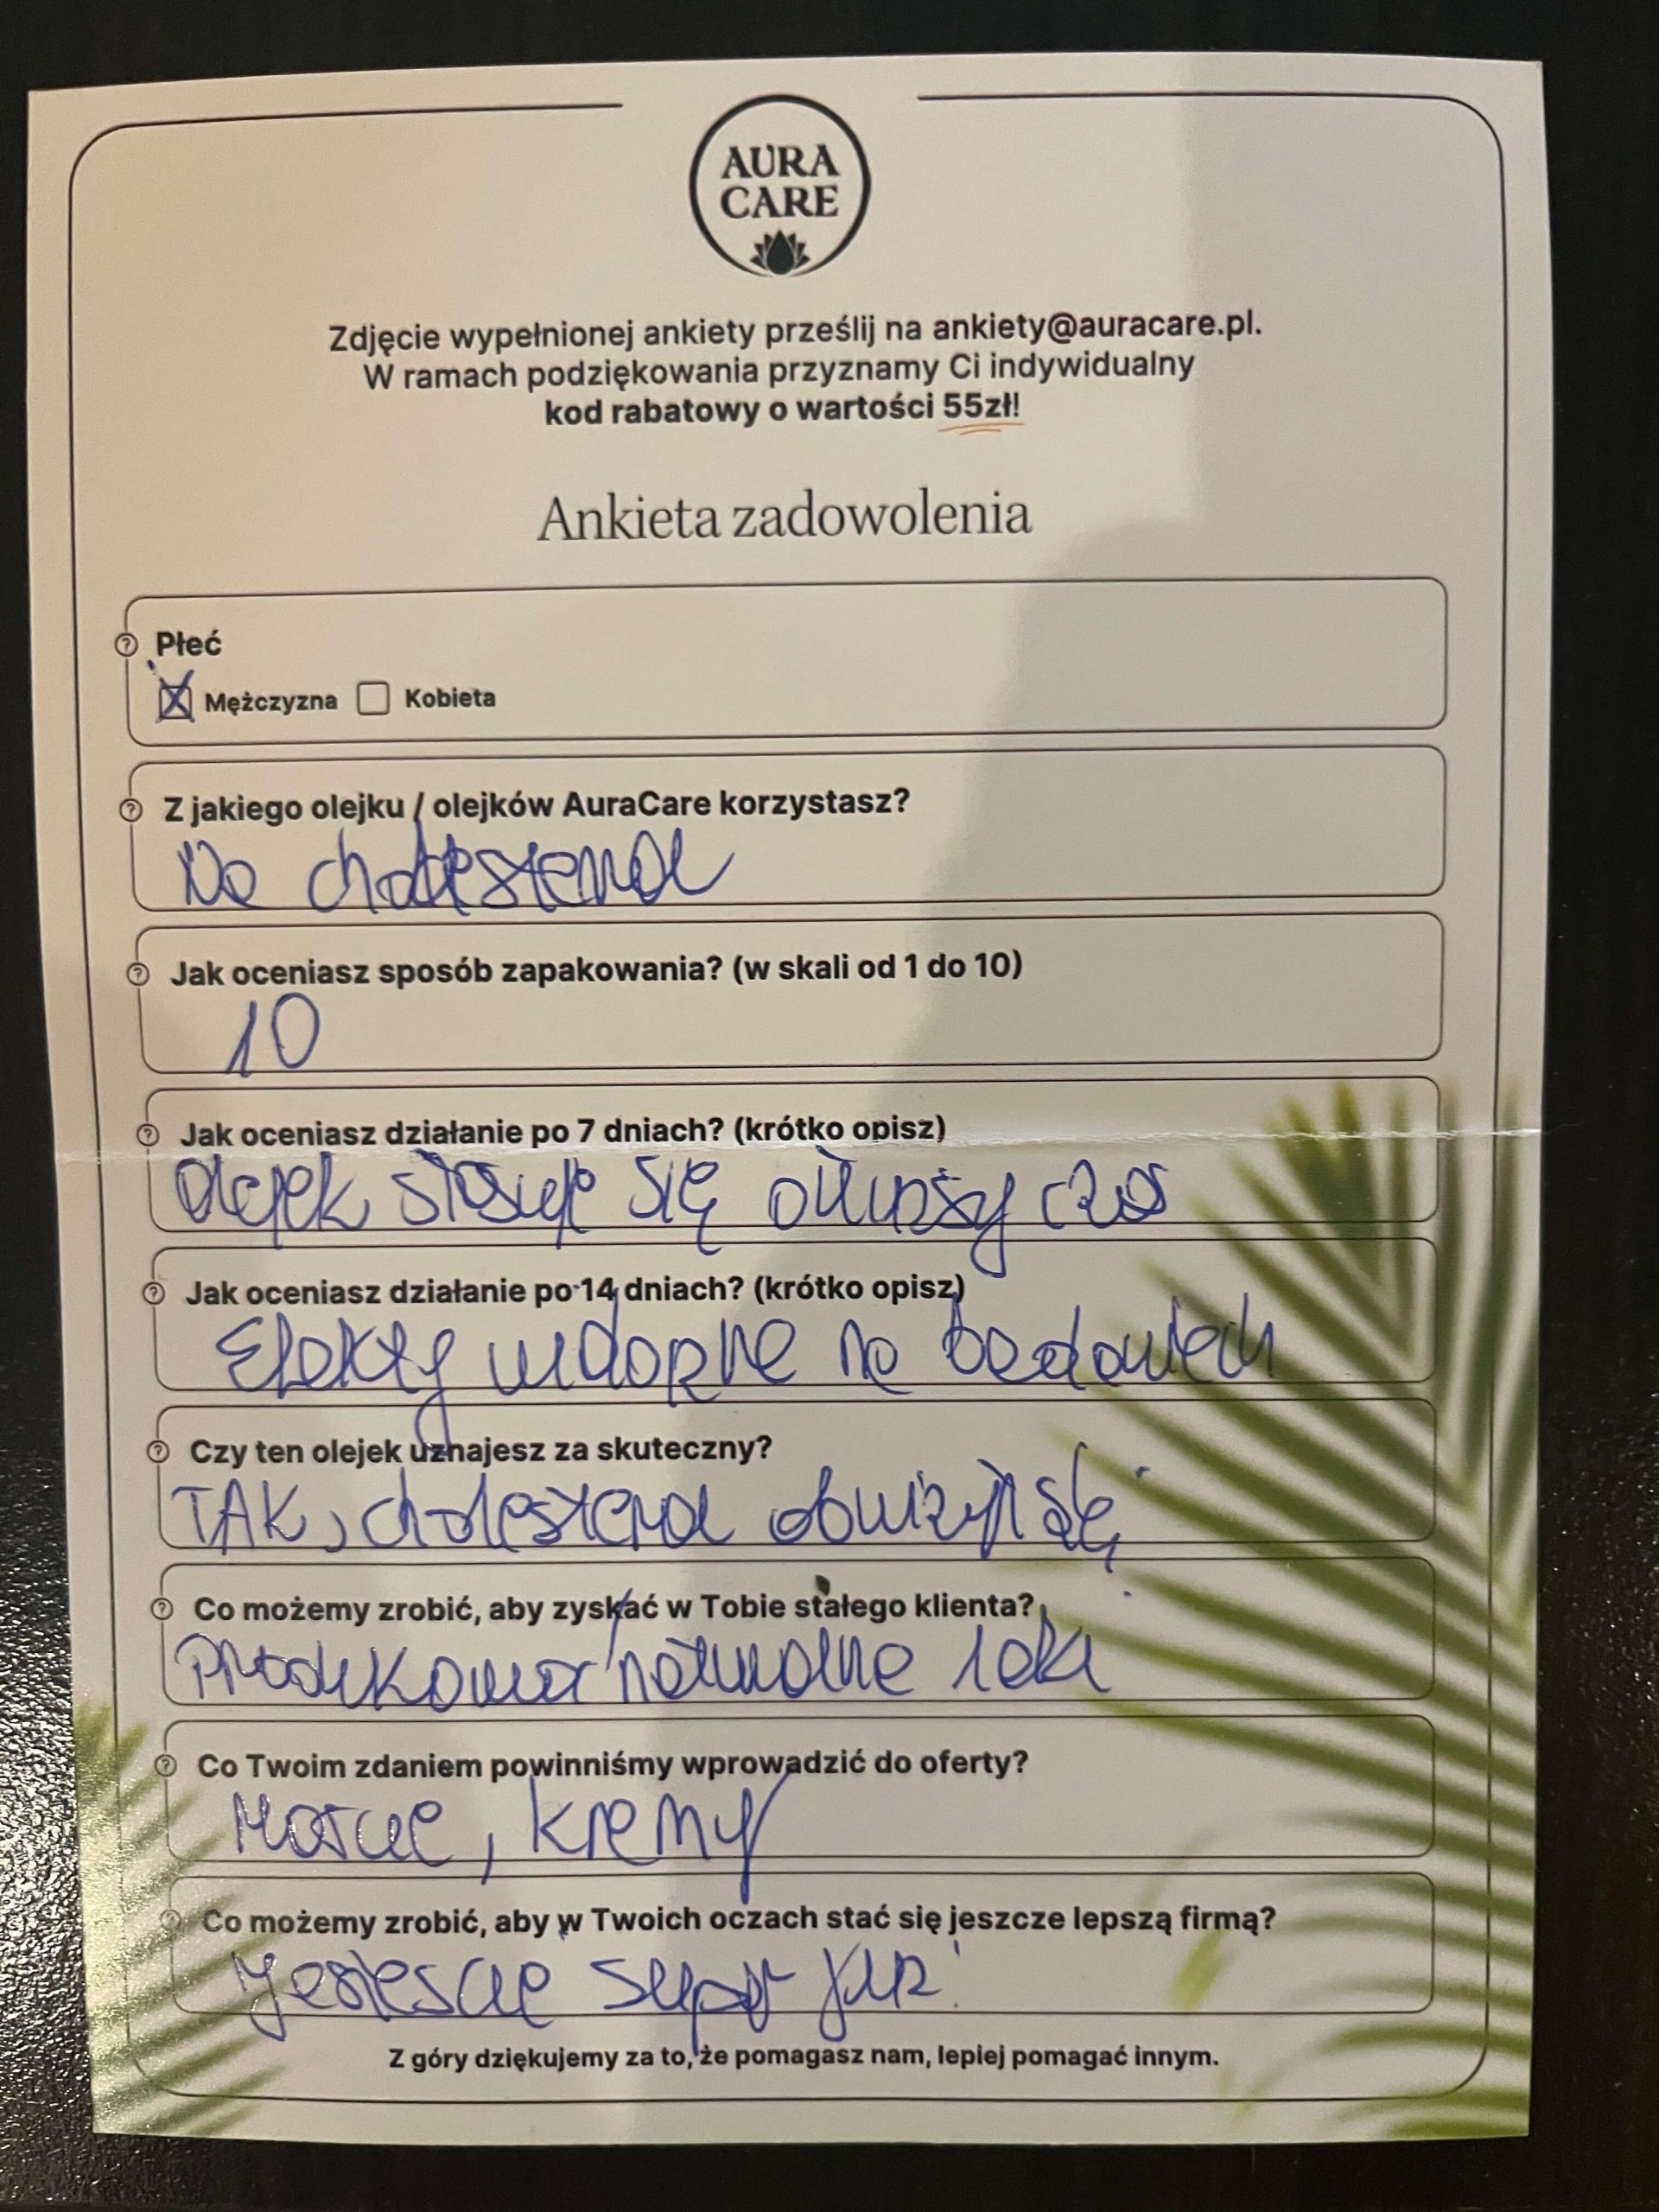 AURA
CARE
Zdjęcie wypełnionej ankiety prześlij na ankiety@auracare.pl.
W ramach podziękowania przyznamy Ci indywidualny
kod rabatowy o wartości 55zł!
Ankieta zadowolenia
Płeć
Mężczyzna Kobieta
Z jakiego olejku / olejków AuraCare korzystasz?
Na cholesterol
Jak oceniasz sposób zapakowania? (w skali od 1 do 10)
10
Jak oceniasz działanie po 7 dniach? (krótko opisz)
Olejek stosuje się dłuższy czas
Jak oceniasz działanie po 14 dniach? (krótko opisz)
Efekty widoczne na badaniach
Czy ten olejek uznajesz za skuteczny?
TAK, cholesterol obniżył się
Co możemy zrobić, aby zyskać w Tobie stałego klienta?
Produkować naturalne leki
Co Twoim zdaniem powinniśmy wprowadzić do oferty?
Maście, kremy
Co możemy zrobić, aby w Twoich oczach stać się jeszcze lepszą firmą?
Jesteście super już
Z góry dziękujemy za to, że pomagasz nam, lepiej pomagać innym.